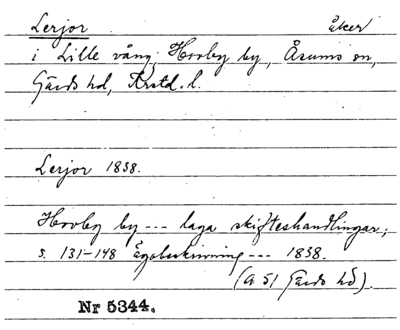 Lerjor åker
i Lille vång, Hovby by, Åsums sn,
Gärds hd, Krstd. l.
Lerjor 1838.
Hovby by --- laga skifteshandlingar;
s. 131-148 Ägobeskrivning --- 1838.
(A 51 Gärds hd).
Nr 5344.